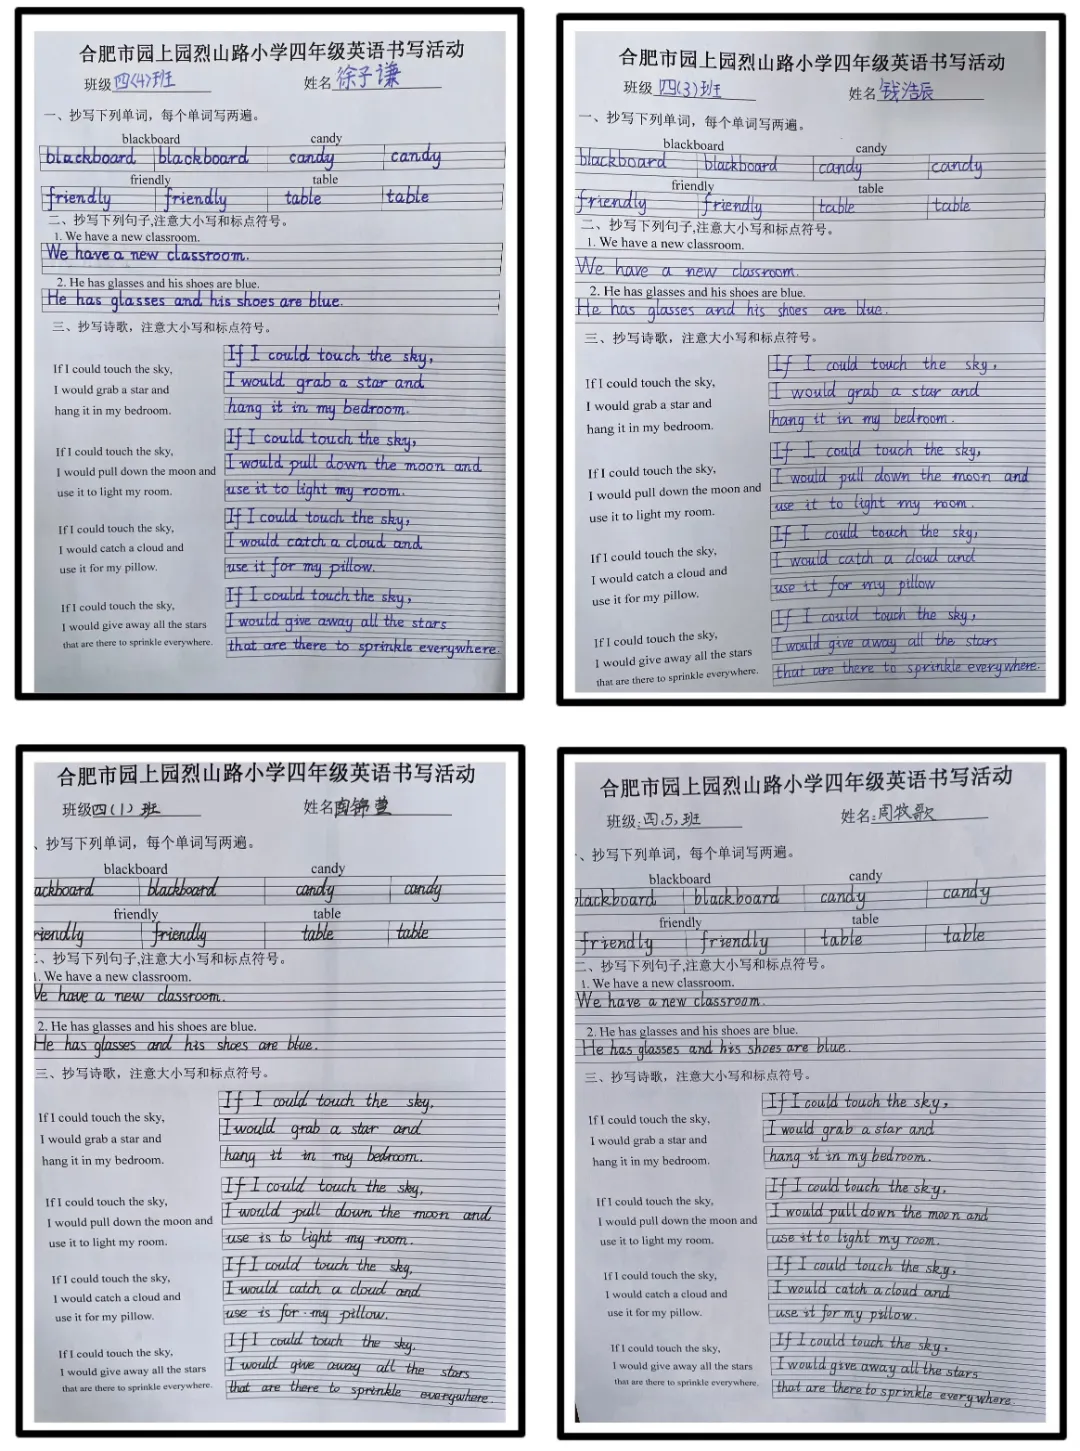 合肥市园上园烈山路小学四年级英语书写活动
班级 四(4)班 姓名 徐子谦
一、抄写下列单词，每个单词写两遍。
blackboard candy
blackboard blackboard candy candy
friendly table
friendly friendly table table
二、抄写下列句子,注意大小写和标点符号。
1. We have a new classroom.
We have a new classroom.
2. He has glasses and his shoes are blue.
He has glasses and his shoes are blue.
三、抄写诗歌，注意大小写和标点符号。
If I could touch the sky,
I would grab a star and
hang it in my bedroom.
If I could touch the sky,
I would pull down the moon and
use it to light my room.
If I could touch the sky,
I would catch a cloud and
use it for my pillow.
If I could touch the sky,
I would give away all the stars
that are there to sprinkle everywhere.
If I could touch the sky,
I would grab a star and
hang it in my bedroom.
If I could touch the sky,
I would pull down the moon and
use it to light my room.
If I could touch the sky,
I would catch a cloud and
use it for my pillow.
If I could touch the sky,
I would give away all the stars
that are there to sprinkle everywhere.
合肥市园上园烈山路小学四年级英语书写活动
班级 四(3)班 姓名 钱浩辰
一、抄写下列单词，每个单词写两遍。
blackboard candy
blackboard blackboard candy candy
friendly table
friendly friendly table table
二、抄写下列句子,注意大小写和标点符号。
1. We have a new classroom.
We have a new classroom.
2. He has glasses and his shoes are blue.
He has glasses and his shoes are blue.
三、抄写诗歌，注意大小写和标点符号。
If I could touch the sky,
I would grab a star and
hang it in my bedroom.
If I could touch the sky,
I would pull down the moon and
use it to light my room.
If I could touch the sky,
I would catch a cloud and
use it for my pillow.
If I could touch the sky,
I would give away all the stars
that are there to sprinkle everywhere.
If I could touch the sky,
I would grab a star and
hang it in my bedroom.
If I could touch the sky,
I would pull down the moon and
use it to light my room.
If I could touch the sky,
I would catch a cloud and
use it for my pillow
If I could touch the sky,
I would give away all the stars
that are there to sprinkle everywhere.
合肥市园上园烈山路小学四年级英语书写活动
班级 四(1)班 姓名 陶锦萱
、抄写下列单词，每个单词写两遍。
blackboard candy
ackboard blackboard candy candy
friendly table
riendly friendly table table
二、抄写下列句子,注意大小写和标点符号。
1. We have a new classroom.
We have a new classroom.
2. He has glasses and his shoes are blue.
He has glasses and his shoes are blue.
三、抄写诗歌，注意大小写和标点符号。
If I could touch the sky,
I would grab a star and
hang it in my bedroom.
If I could touch the sky,
I would pull down the moon and
use it to light my room.
If I could touch the sky,
I would catch a cloud and
use it for my pillow.
If I could touch the sky,
I would give away all the stars
that are there to sprinkle everywhere.
If I could touch the sky,
I would grab a star and
hang it in my bedroom.
If I could touch the sky,
I would pull down the moon and
use is to light my room.
If I could touch the sky,
I would catch a cloud and
use is for my pillow.
If I could touch the sky,
I would give away all the stars
that are there to sprinkle everywhere.
合肥市园上园烈山路小学四年级英语书写活动
班级:四、5、班 姓名:周牧歌
、抄写下列单词，每个单词写两遍。
blackboard candy
blackboard blackboard candy candy
friendly table
friendly friendly table table
二、抄写下列句子,注意大小写和标点符号。
1. We have a new classroom.
We have a new classroom.
2. He has glasses and his shoes are blue.
He has glasses and his shoes are blue.
三、抄写诗歌，注意大小写和标点符号。
If I could touch the sky,
I would grab a star and
hang it in my bedroom.
If I could touch the sky,
I would pull down the moon and
use it to light my room.
If I could touch the sky,
I would catch a cloud and
use it for my pillow.
If I could touch the sky,
I would give away all the stars
that are there to sprinkle everywhere.
If I could touch the sky,
I would grab a star and
hang it in my bedroom.
If I could touch the sky.
I would pull down the moon and
use it to light my room.
If I could touch the sky,
I would catch a cloud and
use it for my pillow.
If I could touch the sky,
I would give away all the stars
that are there to sprinkle everywhere.